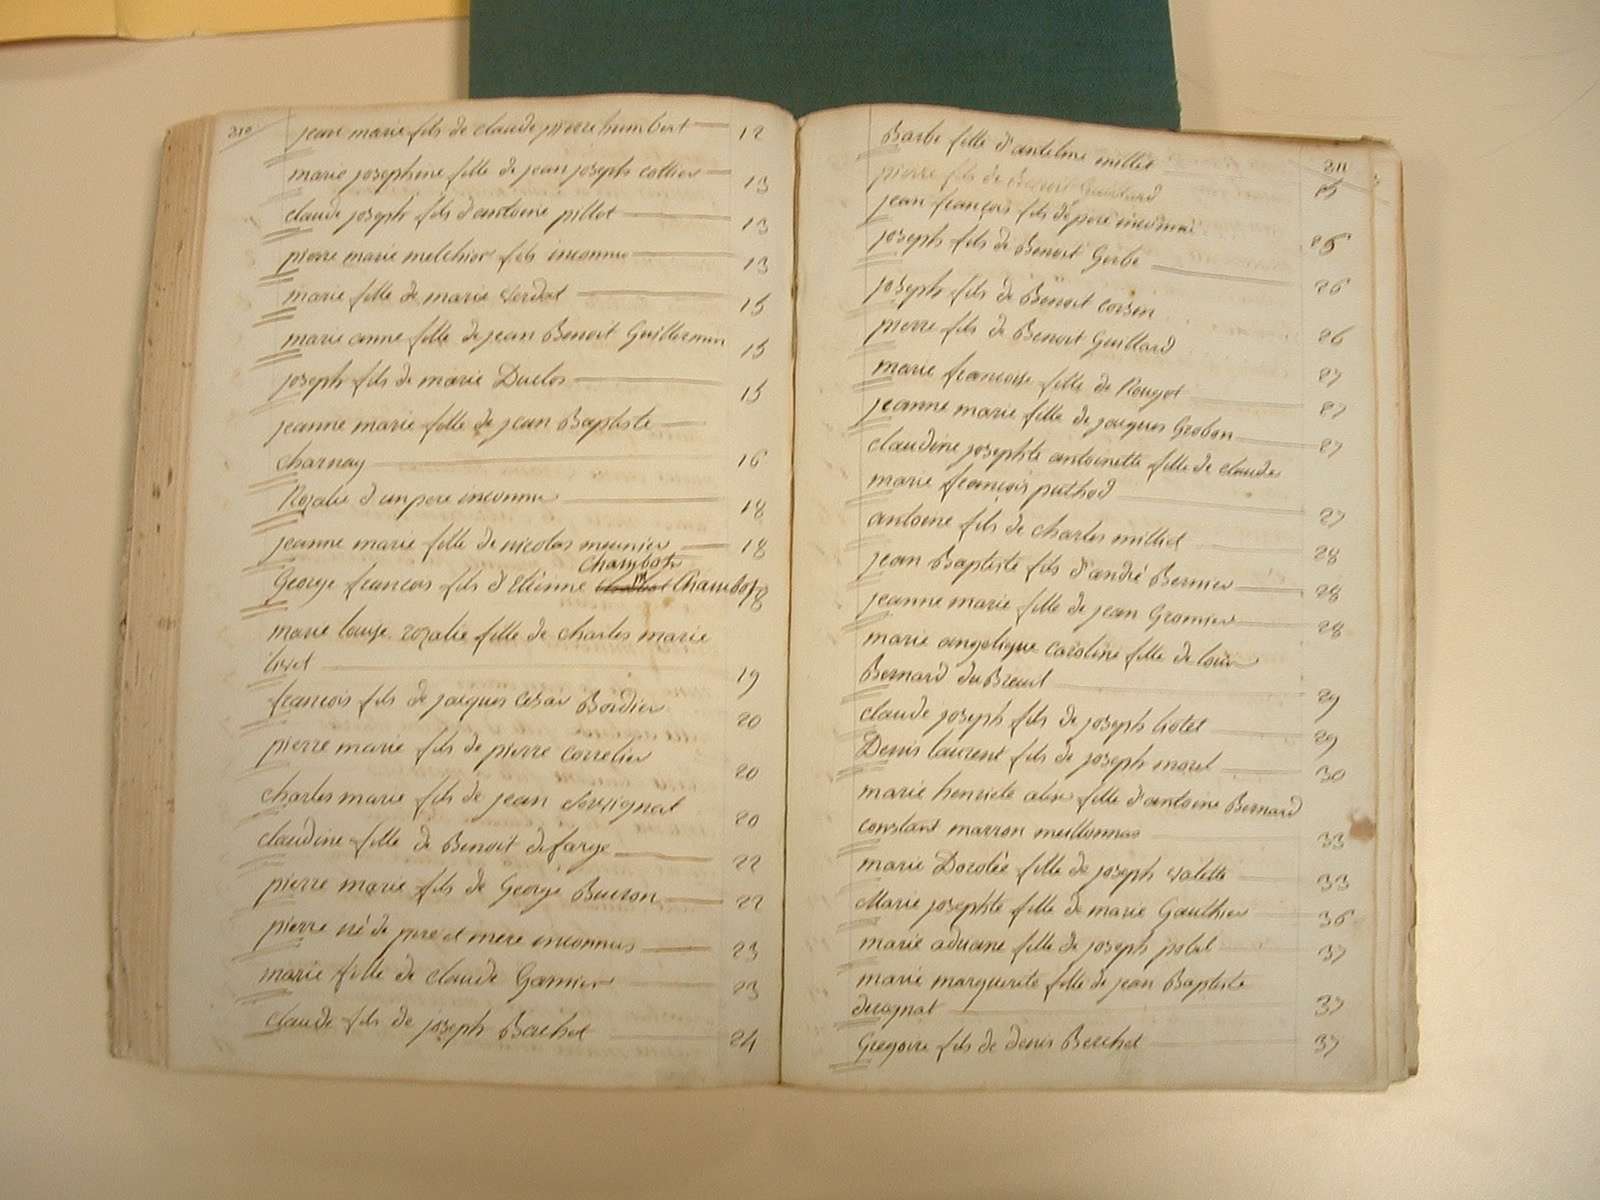 210
jean marie fils de claude pierre humbert 12
marie josephine fille de jean joseph cottier 13
claude joseph fils d'antoine pillot 13
pierre marie melchior fils inconnu 13
marie fille de marie Verdet 15
marie anne fille de jean Benoit Guillermin 15
joseph fils de marie Duclos 15
jeanne marie fille de jean Baptiste
charnay 16
Rozalie d'un pere inconnu 18
jeanne marie fille de nicolas meunier 18
Chambots
George francois fils d'Etienne Chambot 18
marie louise rozalie fille de charles marie
livet 19
francois fils de jacques Cesar Bordier 20
pierre marie fils de pierre correlier 20
charles marie fils de jean 20
claudine fille de Benoit defarge 22
pierre marie fils de George Bueron 22
pierre né de pere et mere inconnus 23
marie fille de claude Garnier 23
claude fils de joseph Bachet 24
211
Barbe fille d'antelme milliet
pierre fils de Benoit Guillard 25
jean françois fils de pere inconnu
joseph fils de Benoit Gerbe 26
joseph fils de Benoit corsen
pierre fils de Benoit Guillard 26
marie francoise fille de Rouget 27
jeanne marie fille de jacques Grobon 27
claudine josephte antoinette fille de claude 27
marie françois puthod
antoine fils de charles milliet 27
jean Baptiste fils d'andré Bernier 28
jeanne marie fille de jean Gromier 28
marie angelique caroline fille de louis 28
Bernard du Breuil
claude joseph fils de joseph hotet 29
Denis laurent fils de joseph morel 29
marie henriete alise fille d'antoine Bernard 30
constant marron meillonnas 33
marie Dorotée fille de joseph valette 33
Marie josephte fille de marie Gauthier 36
marie aduane fille de joseph jolet 37
marie marguerite fille de jean Baptiste
decognat 37
Gregoire fils de denis Berchet 37